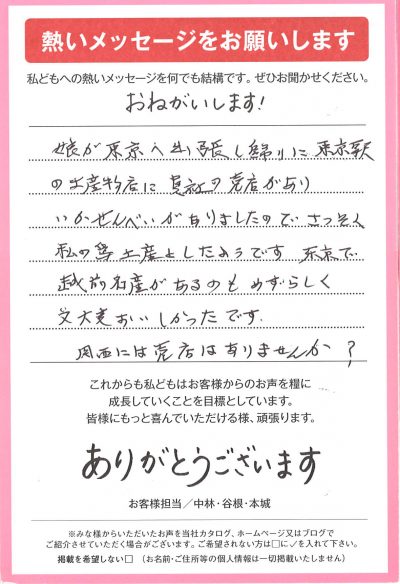 熱いメッセージをお願いします
私どもへの熱いメッセージを何でも結構です。ぜひお聞かせください。
おねがいします!
娘が東京へ出張し帰りに東京駅
の土産物店に貴社の売店があり
いかせんべいがありましたのでさっそく
私の等土産としたようです 東京で
越前名産があるのもめずらしく
又大変おいしかったです.
関西には売店はありませんか?
これからも私どもはお客様からのお声を糧に
成長していくことを目標としています。
皆様にもっと喜んでいただける様、頑張ります。
ありがとうございます
お客様担当/中林・谷根・本城
※みな様からいただいたお声を当社カタログ、ホームページ又はブログで
ご紹介させていただく場合がございます。ご希望されない方は□に✓を入れて下さい。
掲載を希望しない□ (お名前・ご住所等の個人情報は一切掲載いたしません)